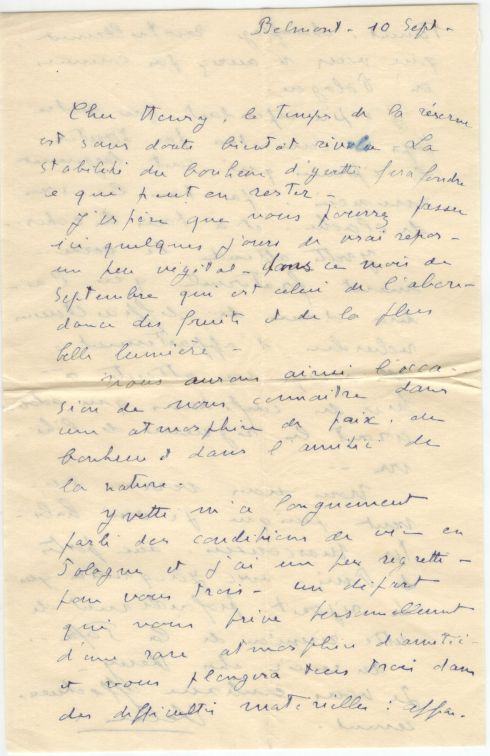 Belmont - 10 Sept -
Cher Henry, le temps de la réserve
est sans doute bientôt révolu. La
stabilité du bonheur d'Yvette fera fondre
ce qui peut en rester -
J'espère que vous pourrez passer
ici quelques jours de vrai repos -
un peu végétal - dans ce mois de
Septembre qui est celui de l'abon-
dance des fruits et de la plus
belle lumière -
Nous aurons ainsi l'occa-
sion de nous connaître dans
une atmosphère de paix, de
bonheur et dans l'amitié de
la nature.
Yvette m'a longuement
parlé des conditions de vie - en
Sologne et j'ai un peu regretté -
pour vous trois - un départ
qui vous prive personnellement
d'une rare atmosphère d'amitié
et vous plongera tous trois dans
des difficultés matérielles :